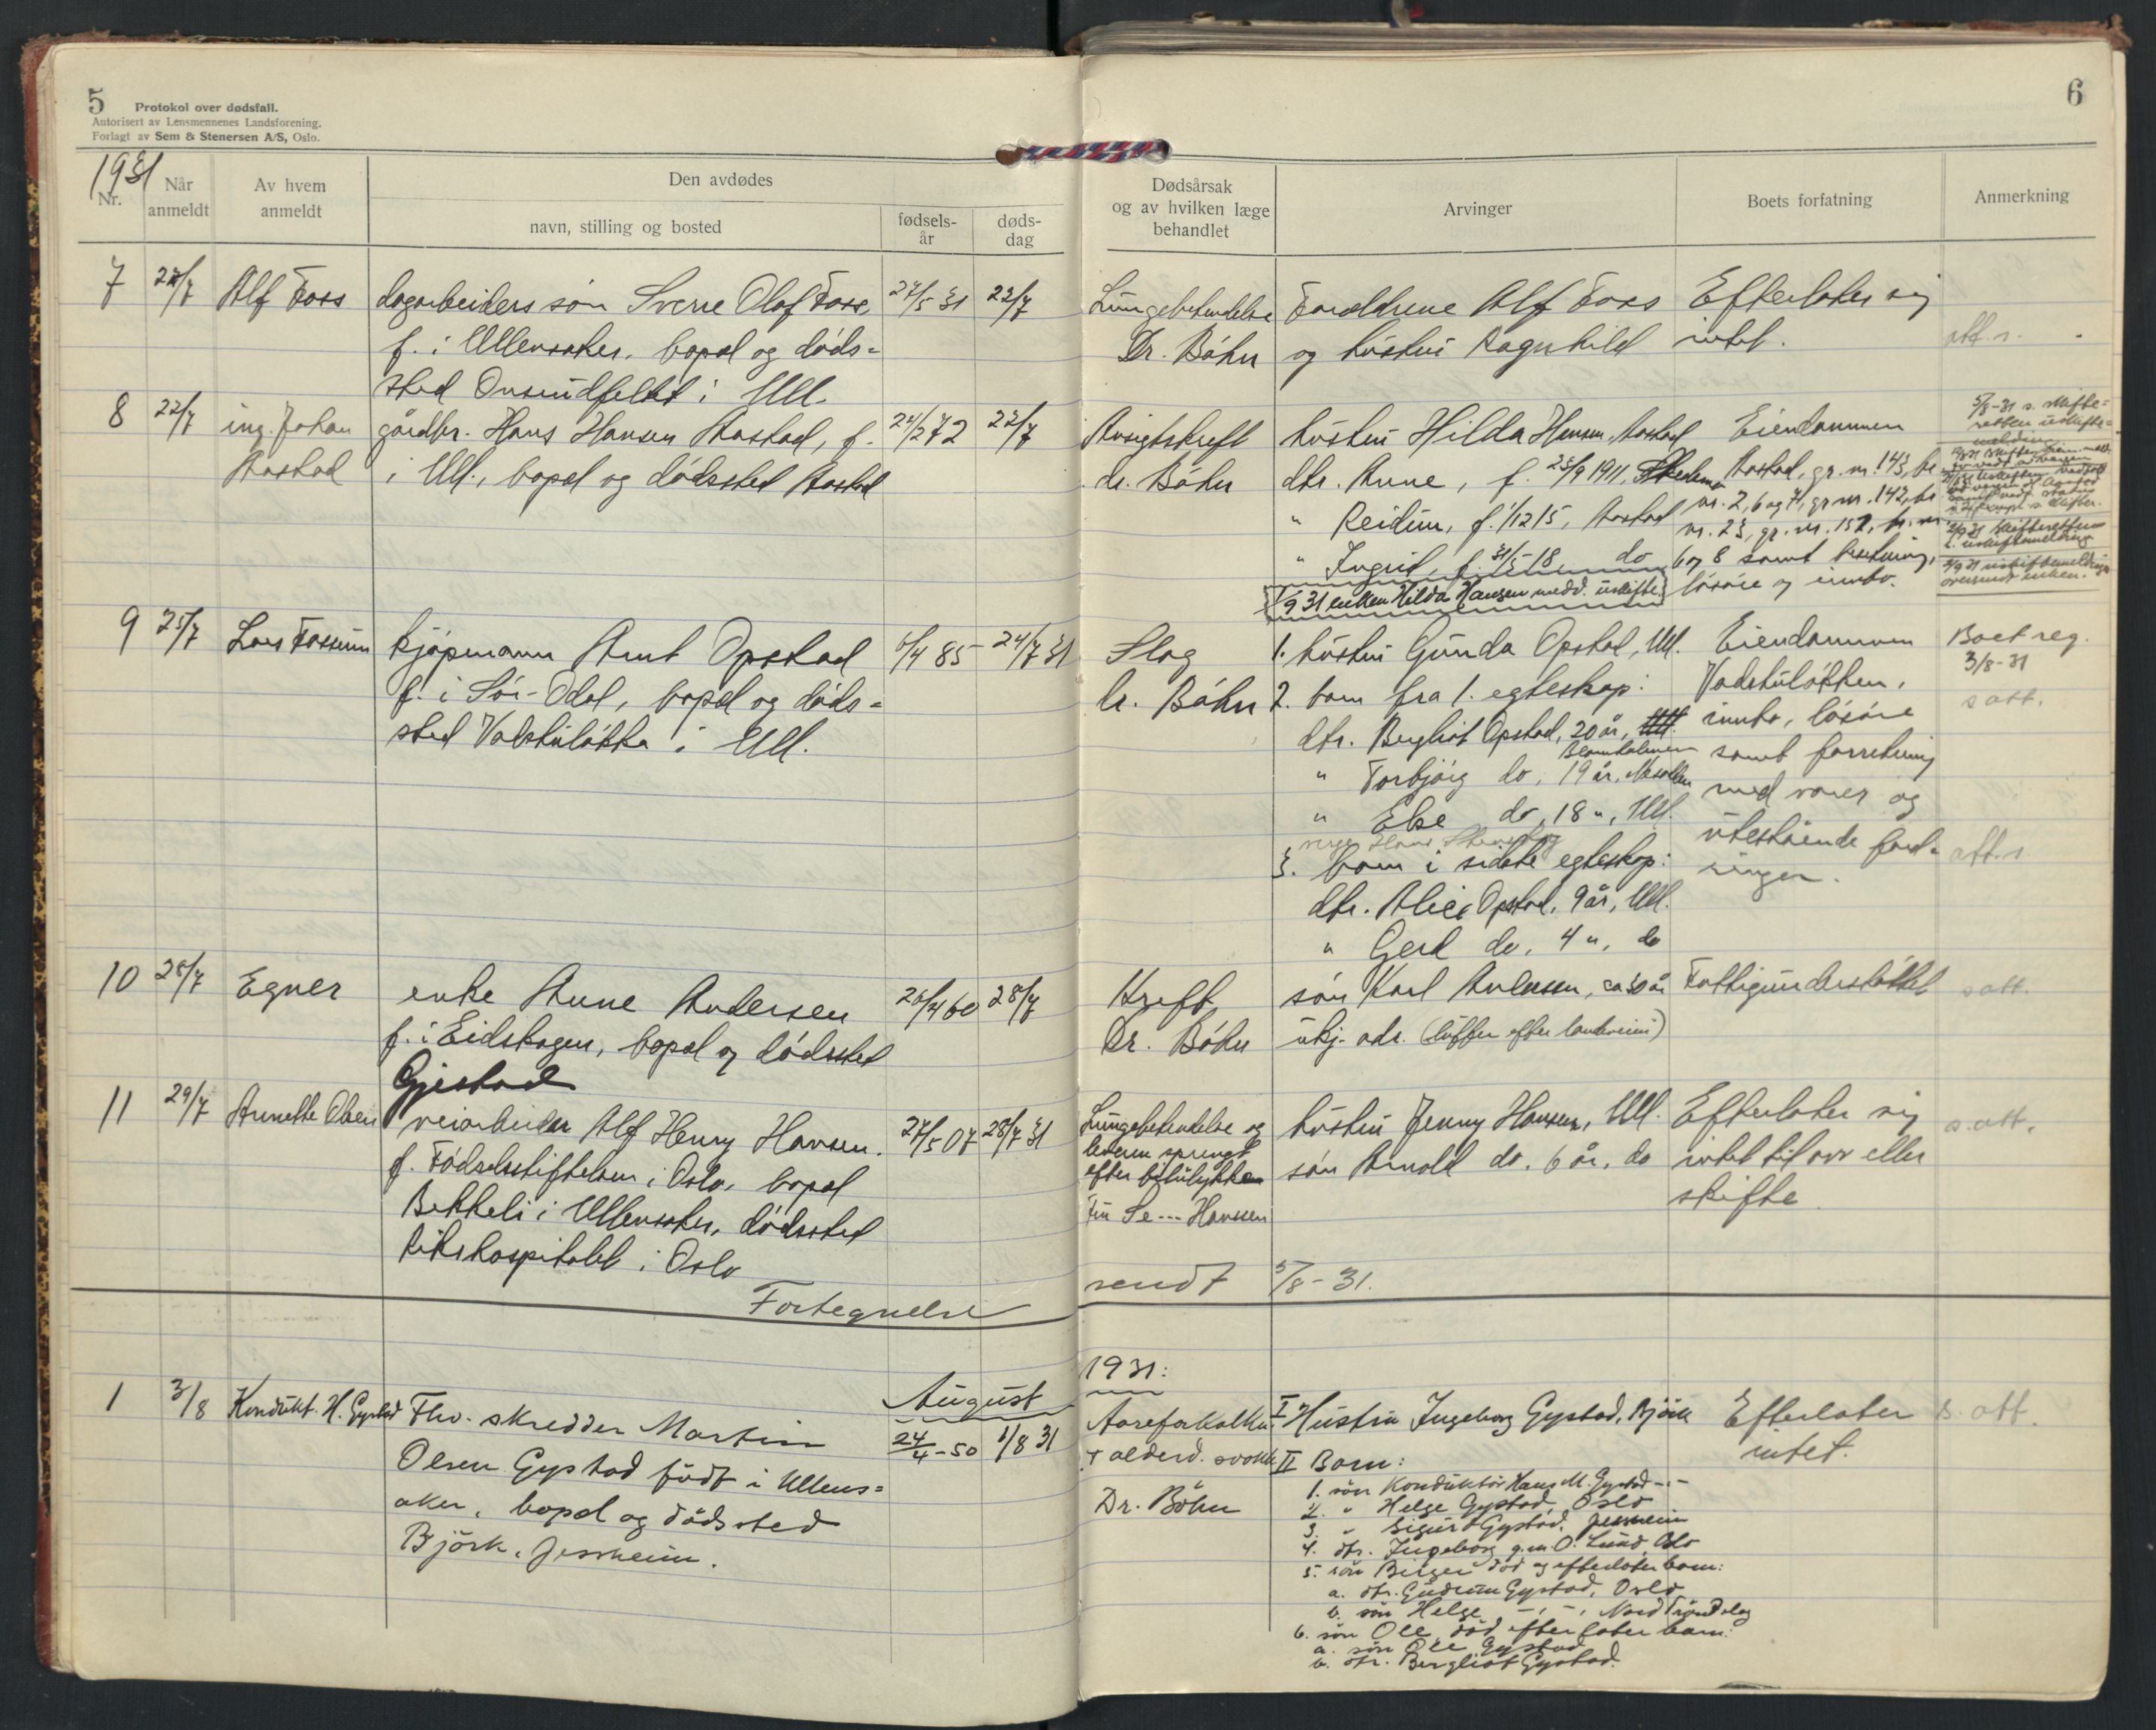 5 Protokol over dødsfall.
Autorisert av Lensmennenes Landsforening.
Forlagt av Sem & Stenersen A/S, Oslo.
6
1931
Nr.
Når anmeldt
Av hvem anmeldt
Den avdødes
navn, stilling og bosted
fødsels-år
døds-dag
Dødsårsak og av hvilken læge behandlet
Arvinger
Boets forfatning
Anmerkning
7 22/7 Alf Foss
dagarbeiders søn Sverre Olaf Foss, 27/5 31 22/7
f. i Ullensaker, bopæl og døds=
sted Onsrudfeltet i Ull.
Lungebetendelse
Dr. Bøhn
Foreldrene Alf Foss
og hustru Ragnhild
Efterlater sig
intet.
att. s.
8 22/7 ing. Johan
Aastad
gårdbr. Hans Hansen Aastad, f. 24/2 72 22/7
i Ull., bopæl og dødssted Aastad
Ansigtskreft
dr. Bøhn
hustru Hilda Hansen Aastad
dtr. Anne, f. 25/9 1911,
" Reidun, f. 1/12 15, Aastad
" Ingrid, f. 31/5 18, do
1/9 31 enken Hilda Hansen medd. uskifte
Eiendommen
Aastad, gr. nr. 143, br.
nr. 2, 6 og 7, gr. nr. 142, br.
nr. 23, gr. nr. 157, br. nr.
6 og 8 samt besetning,
løsøre og innbo.
5/8-31 s. skifte=
retten uskifte=
melding
2/9 31 skifteretten
s. uskiftemelding
2/9 31 uskiftemelding
oversendt enken.
9 25/7 Lars Fossum
kjøpmann Arnt Opstad 6/4 85 24/7 31
f. i Sør-Odal, bopæl og døds=
sted Valstuløkka i Ull.
Slag
dr. Bøhn
1. hustru Gunda Opstad, Ull.
2. barn fra 1. egteskap:
dtr. Bergliot Opstad, 20 år,
" Torbjørg do, 19 år,
" Else do, 18 ", Ull.
3. barn i sidste egteskap:
dtr. Alice Opstad, 9 år, Ull.
" Gerd do, 4 ", do
Eiendommen
Valstuløkken,
innbo, løsøre
samt forretning
med varer og
utestående ford-
ringer.
Boet reg.
3/8-31
s att.
att. s
10 28/7 Egner
enke Anne Andersen 26/4 60 28/7
f. i Eidskogen, bopæl og dødssted
Gjestad
Kreft
Dr. Bøhn
søn Karl Andersen, ca 30 år
ukj. adr. (luffer efter landeveien)
Fattigunderstøttet
s att.
11 29/7 Annette Olsen
veiarbeider Alf Henry Hansen. 27/5 07 28/7 31
f. Fødselsstiftelsen i Oslo, bopæl
Bekkeli i Ullensaker, dødssted
Rikshospitalet i Oslo
Lungebetendelse og
leveren sprengt
efter bilulykken
Fru Se--- Hanssen
hustru Jenny Hansen, Ull.
søn Arnold do. 6 år, do
Efterlater sig
intet til arv eller
skifte
s. att.
Fortegnelse
sendt 5/8-31.
August
1931:
1 3/8 Kondukt. H. Gystad
Fhv. skredder Martin 24/4-50 1/8 31
Olsen Gystad født i Ullens=
aker, bopæl og dødssted
Bjørk, Jessheim.
Aareforkalkn.
+ alderd. svakh.
Dr. Bøhn
I Hustru Ingeborg Gystad, Bjørk
II Barn:
1. søn Konduktør Hans M. Gystad -"-
2. " Helge Gystad, Oslo
3. " Sigurd Gystad, Jessheim
4. dtr. Ingeborg g.m. O. Lund, Oslo
5. søn Birger død og efterlater barn:
a. dtr. Gudrun Gystad, Oslo
b. søn Helge -"-, Nord Trøndelag
6. søn Ole, død, efterlater barn:
a. søn Ole Gystad
b. dtr. Bergliot Gystad.
Efterlater
intet.
s. att.